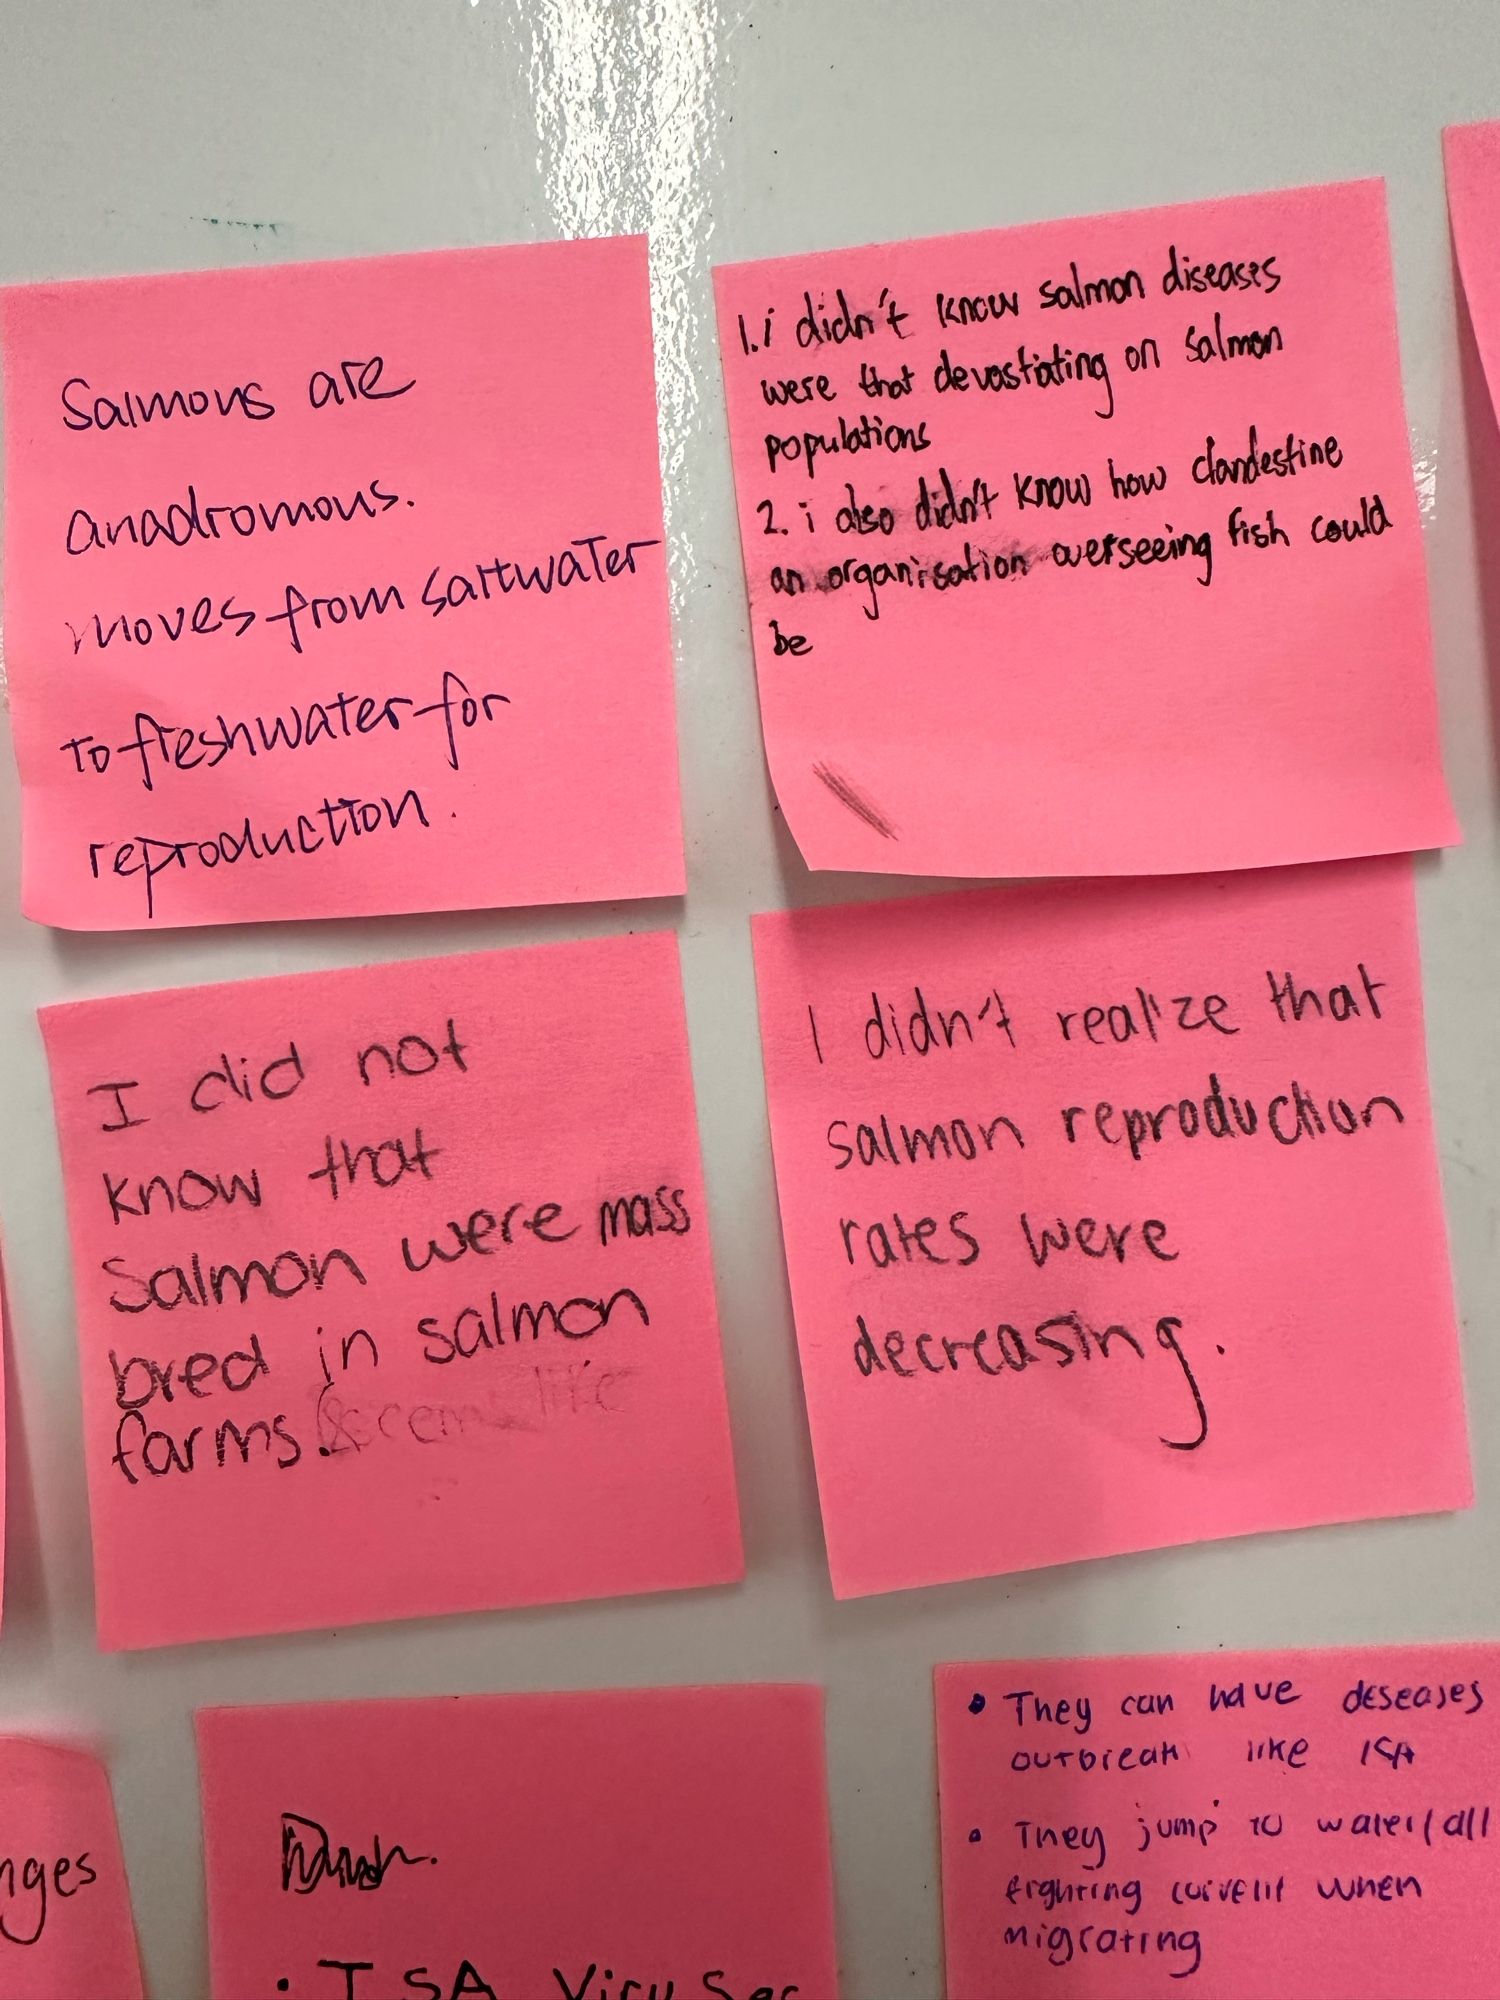 Salmons are
anadromous.
moves from saltwater
to freshwater for
reproduction.
1. i didn't know salmon diseases
were that devastating on salmon
populations
2. i also didn't know how clandestine
an organisation overseeing fish could
be
I did not
know that
Salmon were mass
bred in salmon
farms.
I didn't realize that
salmon reproduction
rates were
decreasing.
nges
• ISA Viruses
• They can have deseases
outbreak like ISA
• They jump to waterfall
fighting current when
migrating